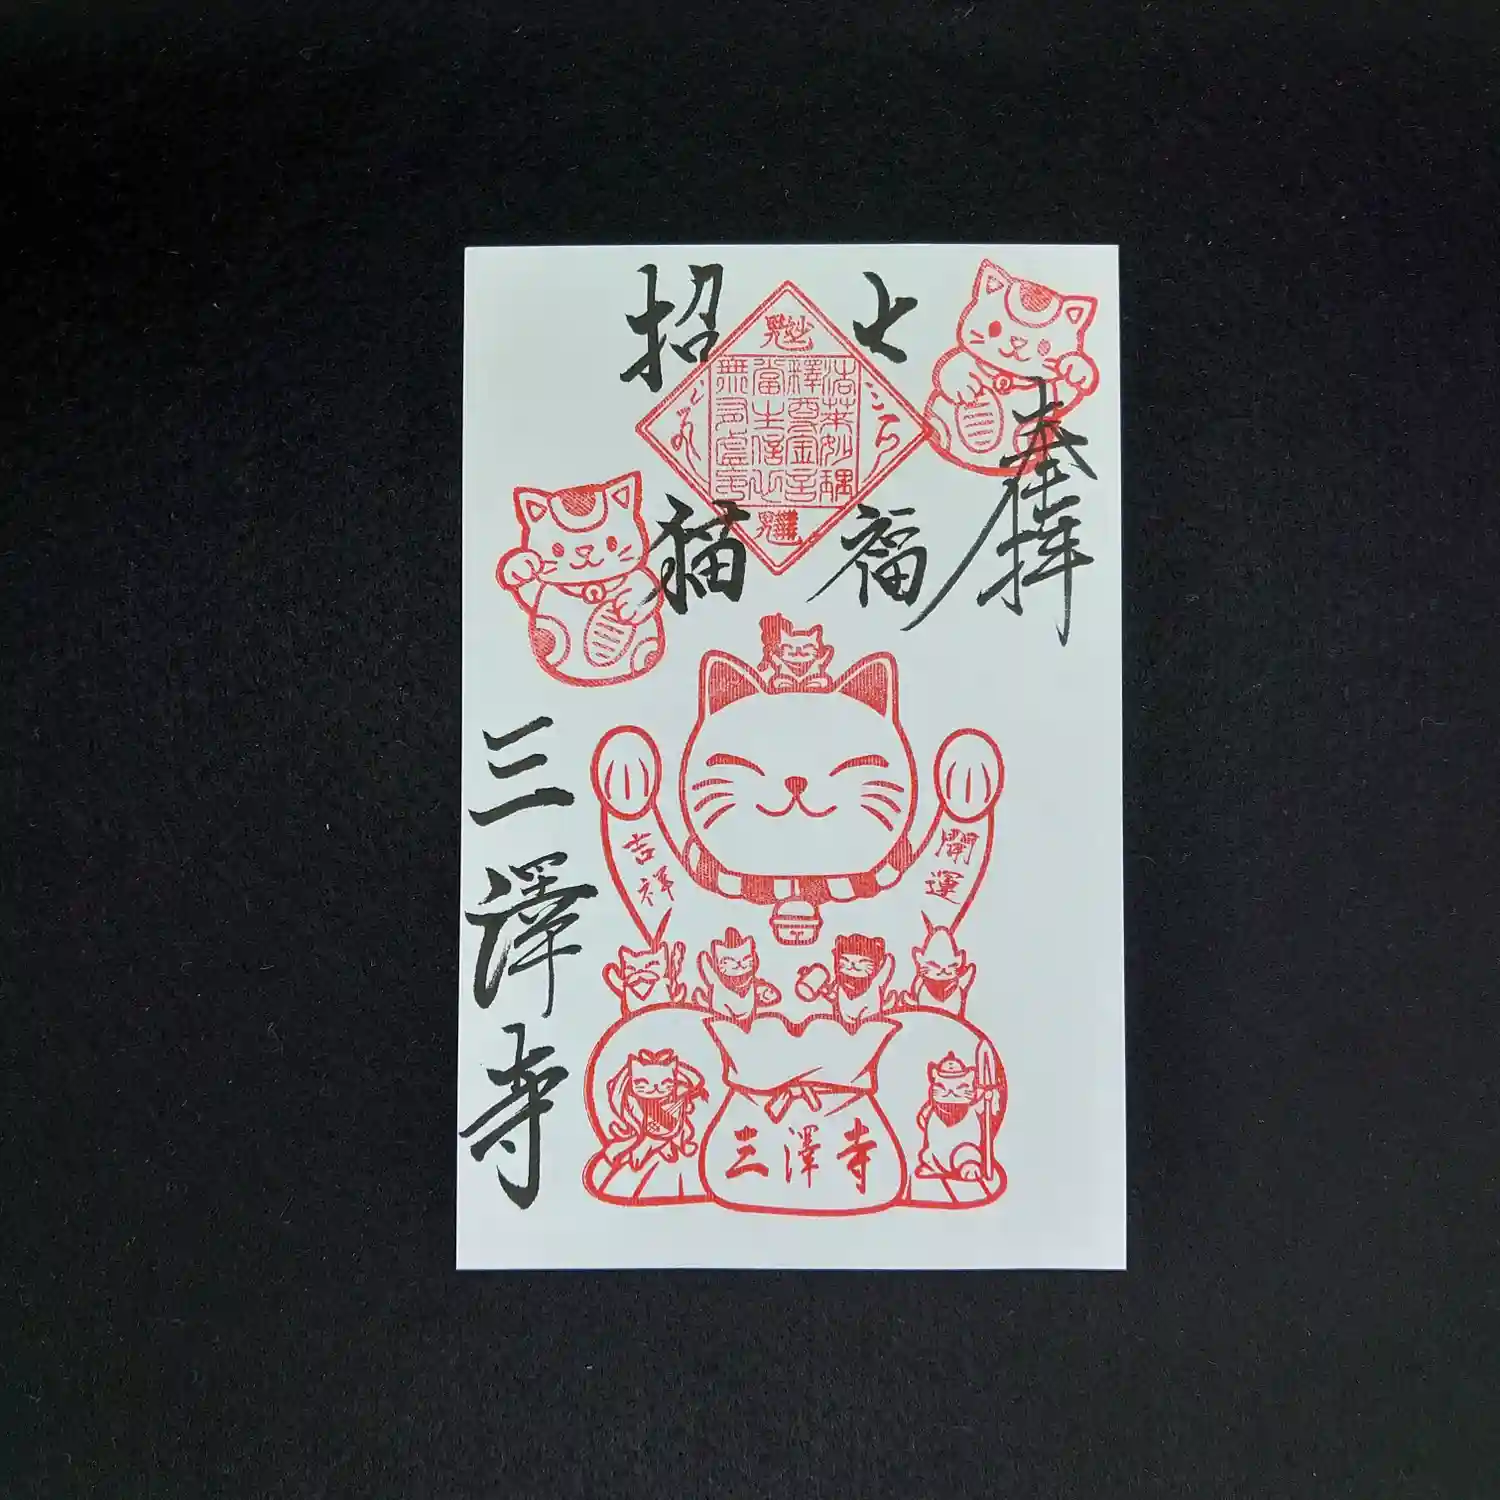 奉拝
七福
招猫
三澤寺
開運
吉祥
三澤寺